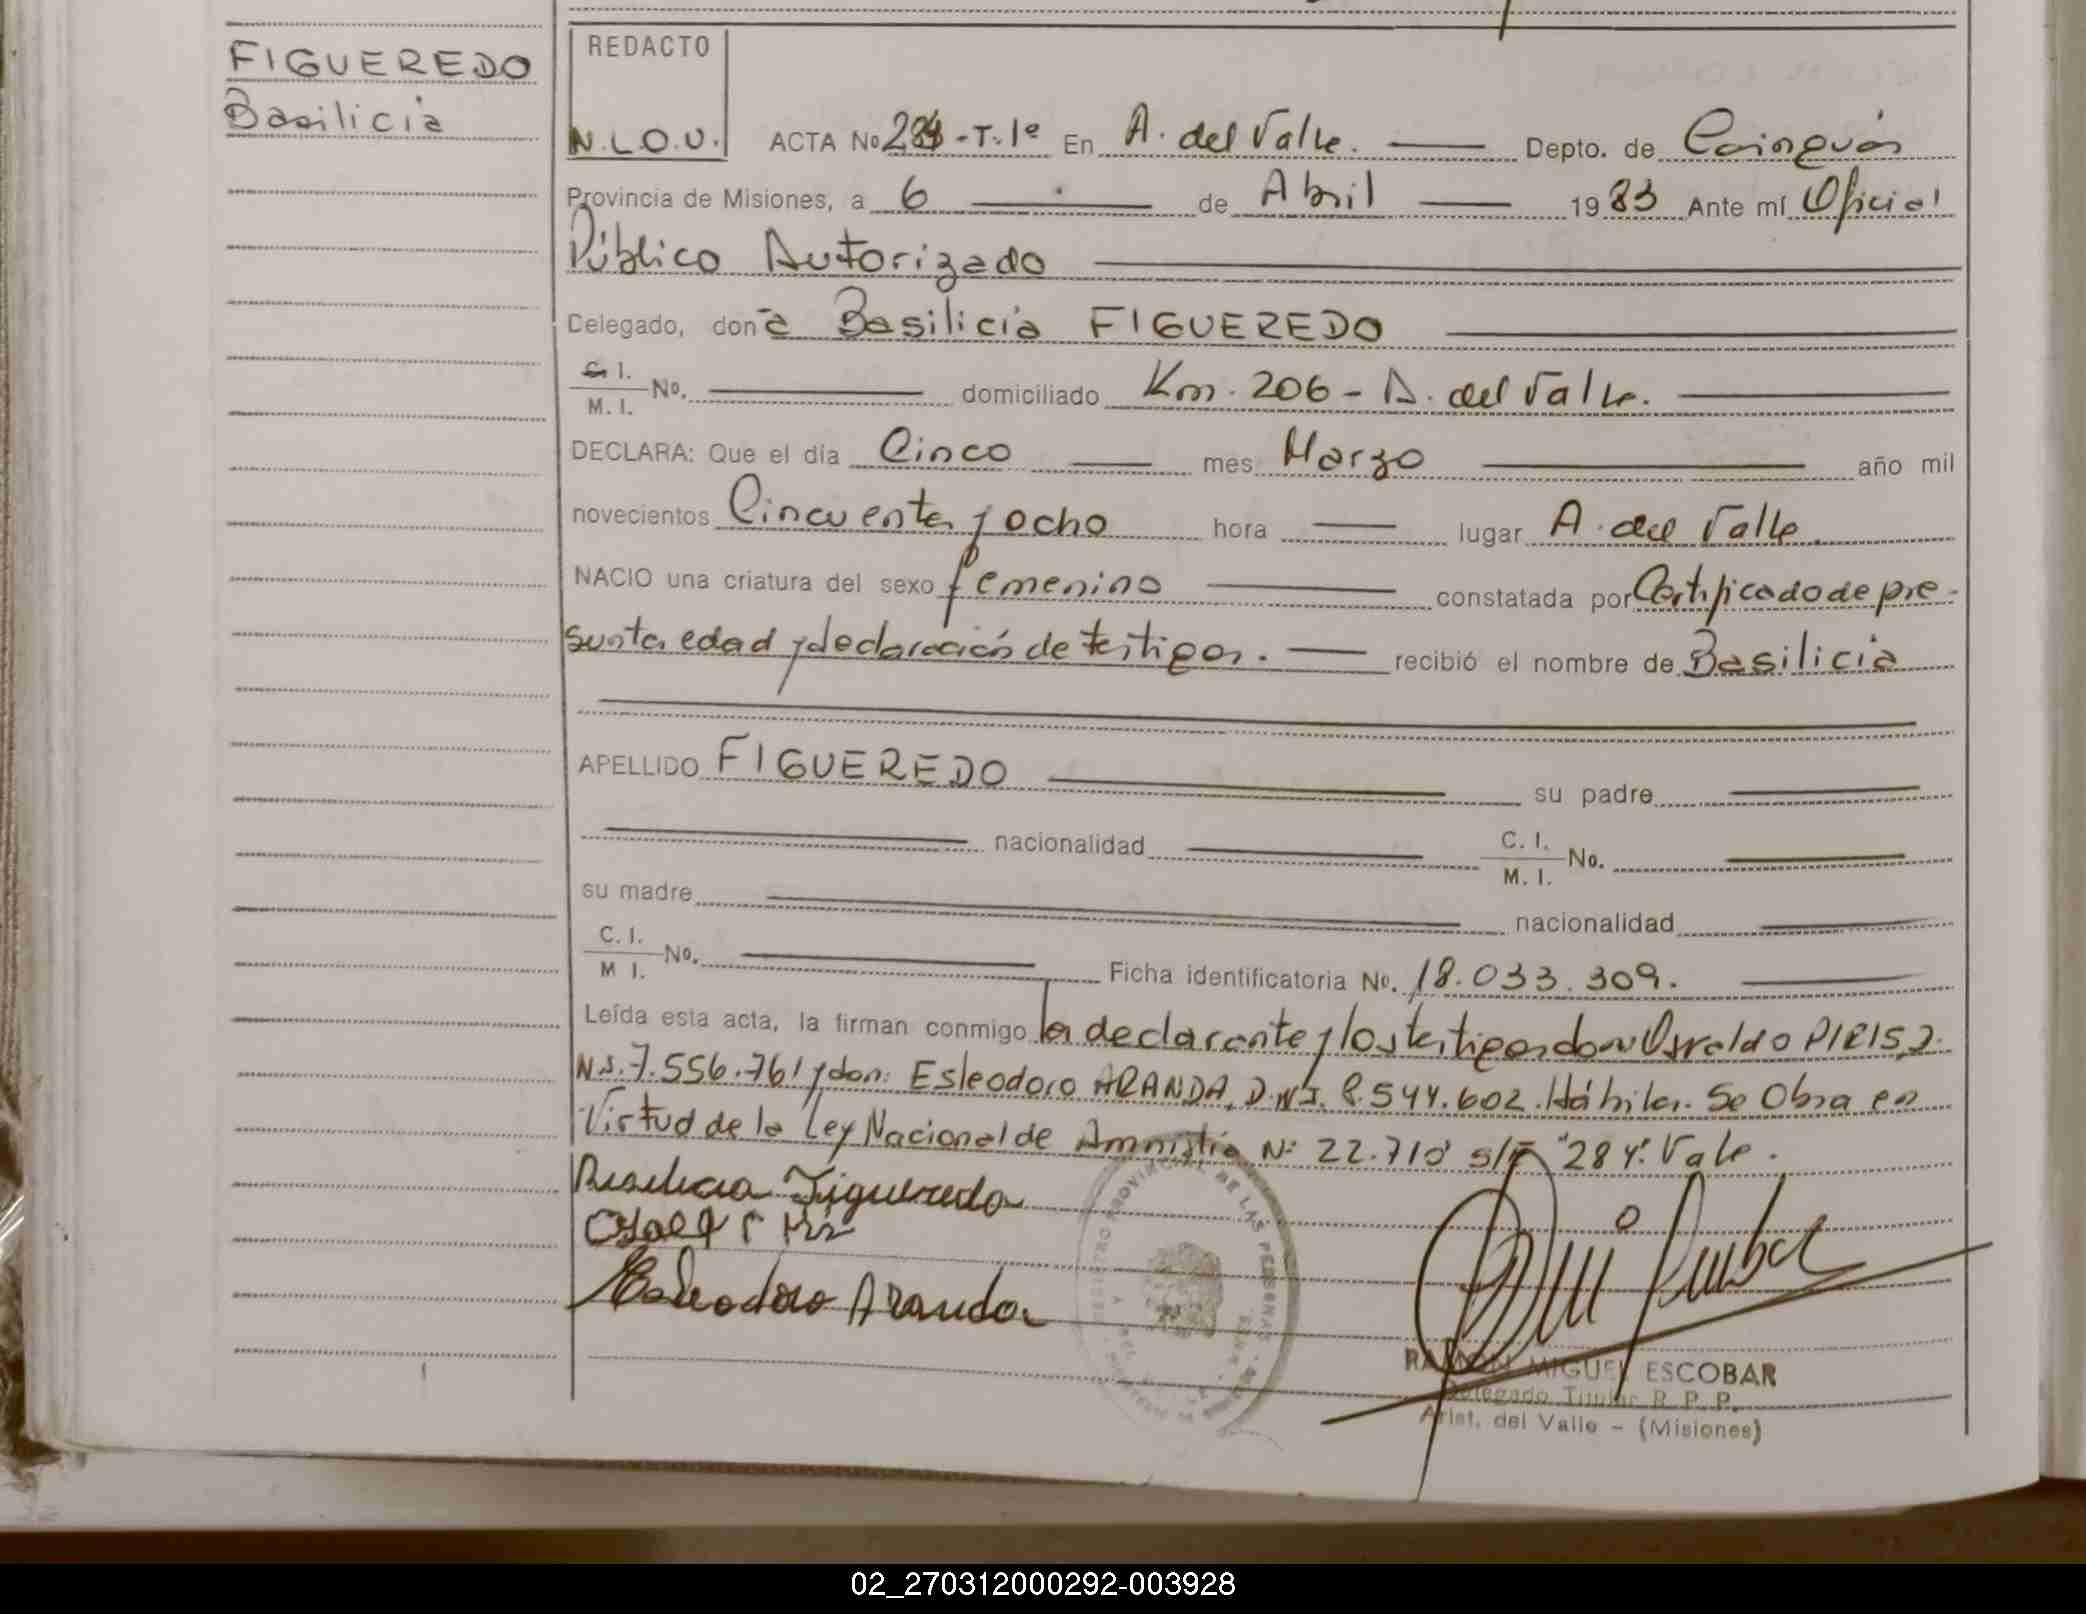 FIGUEREDO
Basilicia
REDACTO
N.L.O.V.
ACTA No 284 - T: 1º En A. del Valle. Depto. de Cainguás
Provincia de Misiones, a 6 de Abril 1983 Ante mí Oficial
Público Autorizado
Delegado, don ã Basilicia FIGUEREDO
C. I.
M. I. No. domiciliado Km. 206 - A. del Valle.
DECLARA: Que el día Cinco mes Marzo año mil
novecientos Cincuenta y ocho hora lugar A. del Valle
NACIO una criatura del sexo femenino constatada por Certificado de pre-
sunta edad y declaración de testigos. recibió el nombre de Basilicia
APELLIDO FIGUEREDO su padre
nacionalidad C. I.
M. I. No.
su madre nacionalidad
C. I.
M I. No. Ficha identificatoria No. 18.033.309.
Leída esta acta, la firman conmigo la declarante y los testigos don Osvaldo PIRIS, D.
N.I. 7.556.761 y don: Esleodoro ARANDA, D.N.I. 8.544.602. Hábiles. Se Obra en
Virtud de la Ley Nacional de Amnistía Nº 22.710 s/r "284". Vale.
Basilicia Figueredo
Esleodoro Aranda
REGISTRO PROVINCIAL DE LAS PERSONAS
RAMON MIGUEL ESCOBAR
Delegado Titular R. P. P.
Arist. del Valle - (Misiones)
02_270312000292-003928